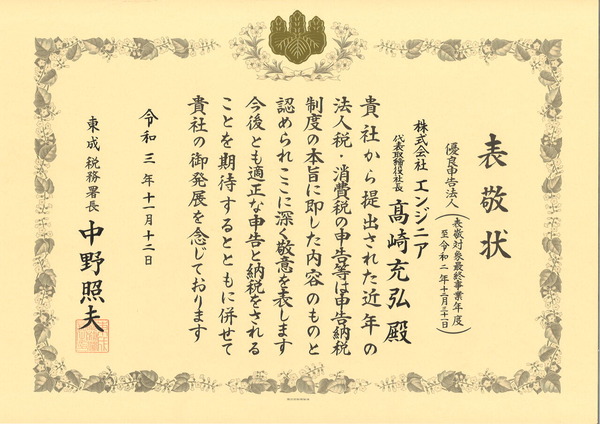 表敬状
優良申告法人(表敬対象最終事業年度
至令和二年十二月三十一日)
株式会社 エンジニア
代表取締役社長 髙崎充弘殿
貴社から提出された近年の
法人税・消費税の申告等は申告納税
制度の本旨に即した内容のものと
認められここに深く敬意を表します
今後とも適正な申告と納税をされる
ことを期待するとともに併せて
貴社の御発展を念じております
令和三年十一月十二日
東成税務署長 中野照夫